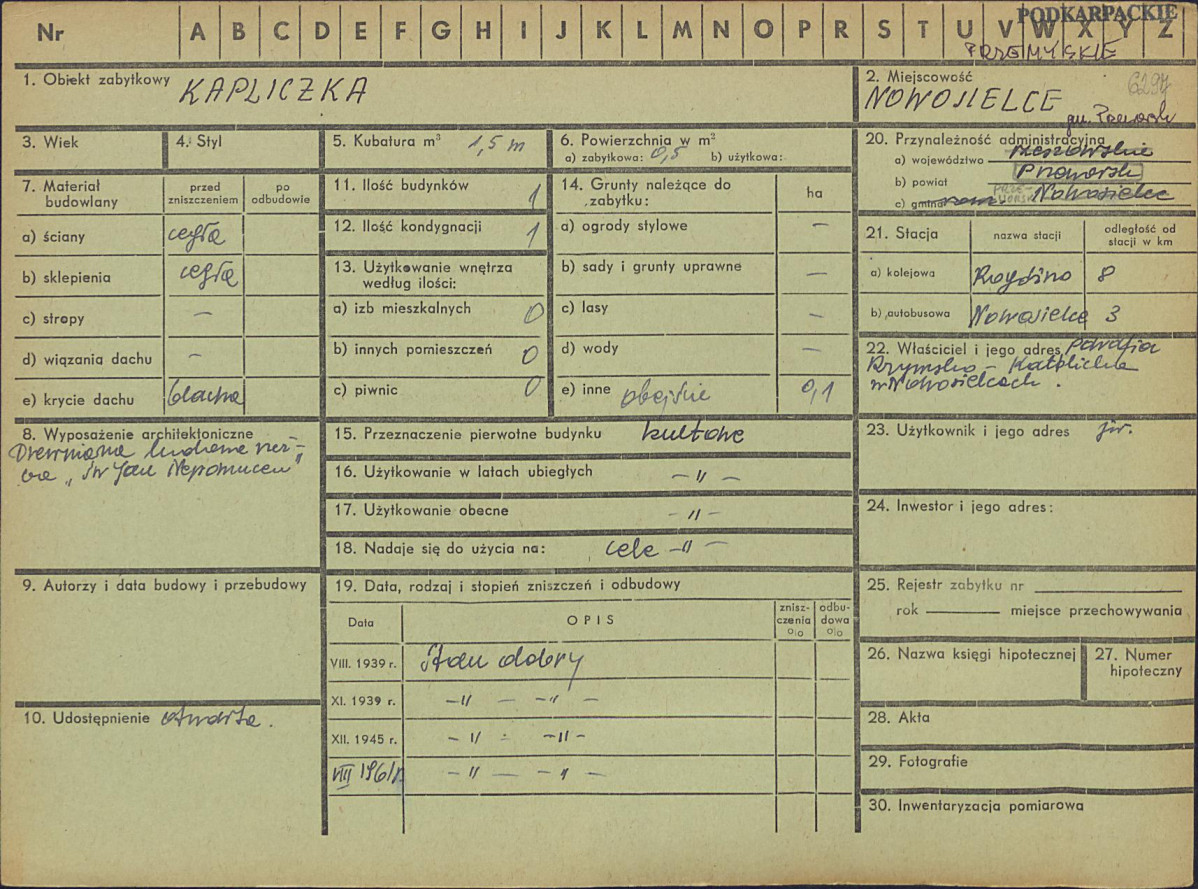 PODKARPACKIE
Nr A B C D E F G H I J K L M N O P R S T U V W X Y Z
PRZEMYSKIE
1. Obiekt zabytkowy KAPLICZKA
2. Miejscowość 6297
NOWOSIELCE
gm. Przeworsk
3. Wiek
4. Styl
5. Kubatura m³ 1,5 m
6. Powierzchnia w m²
a) zabytkowa: 0,5 b) użytkowa:
7. Materiał budowlany
przed zniszczeniem
po odbudowie
a) ściany cegła
b) sklepienia cegła
c) stropy —
d) wiązania dachu —
e) krycie dachu blacha
8. Wyposażenie architektoniczne
Drewniana ludowa rzeź-
ba „Św Jan Nepomucen"
9. Autorzy i data budowy i przebudowy
10. Udostępnienie otwarta.
11. Ilość budynków 1
12. Ilość kondygnacji 1
13. Użytkowanie wnętrza
według ilości:
a) izb mieszkalnych 0
b) innych pomieszczeń 0
c) piwnic 0
14. Grunty należące do
zabytku:
ha
a) ogrody stylowe —
b) sady i grunty uprawne —
c) lasy —
d) wody —
e) inne obejście 0,1
15. Przeznaczenie pierwotne budynku kultowe
16. Użytkowanie w latach ubiegłych — " —
17. Użytkowanie obecne — " —
18. Nadaje się do użycia na: cele — " —
19. Data, rodzaj i stopień zniszczeń i odbudowy
Data
OPIS
znisz-
czenia
%
odbu-
dowa
%
VIII. 1939 r. Stan dobry
XI. 1939 r. — " — — " —
XII. 1945 r. — " — — " —
VIII 1961 r. — " — — " —
20. Przynależność administracyjna
a) województwo rzeszowskie
b) powiat Przeworsk
c) gmina Nowosielce
21. Stacja
nazwa stacji
odległość od
stacji w km
a) kolejowa 8
b) autobusowa Nowosielce 3
22. Właściciel i jego adres parafia
Rzymsko - Katolicka
w Nowosielcach.
23. Użytkownik i jego adres jw.
24. Inwestor i jego adres:
25. Rejestr zabytku nr
rok miejsce przechowywania
26. Nazwa księgi hipotecznej
27. Numer
hipoteczny
28. Akta
29. Fotografie
30. Inwentaryzacja pomiarowa